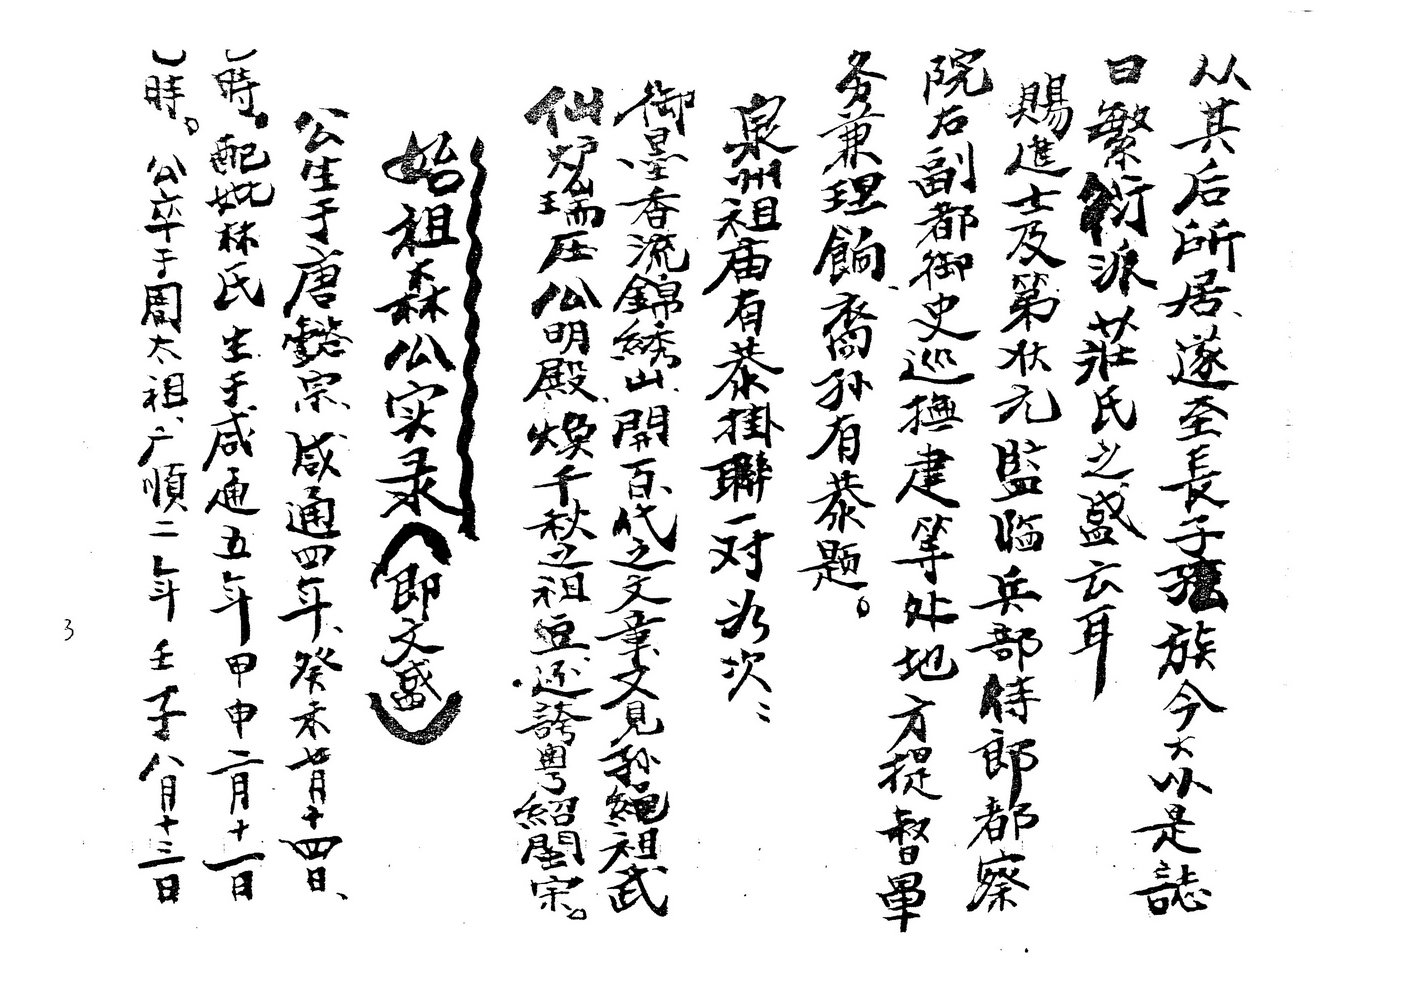 从其后所居、遂至長子孫族今大以是誌
日繁衍派莊氏之盛云耳
賜進士及第状元監临兵部侍郎都察
院右副都御史巡撫建等处地方提督軍
务兼理餉、裔孙有恭題。
泉州祖庙有恭掛聯一对为次:
御墨香流錦綉山、開百代之文章、又見孙繩祖武
仙炉瑞压公明殿、煥千秋之祖豆、还誇粤紹閩宗。
始祖森公实录(即文盛)
公生于唐懿宗、咸通四年、癸未七月十四日、
时。配妣林氏生于咸通五年甲申二月十一日
時。公卒于周太祖、广順二年壬子八月十三日
3